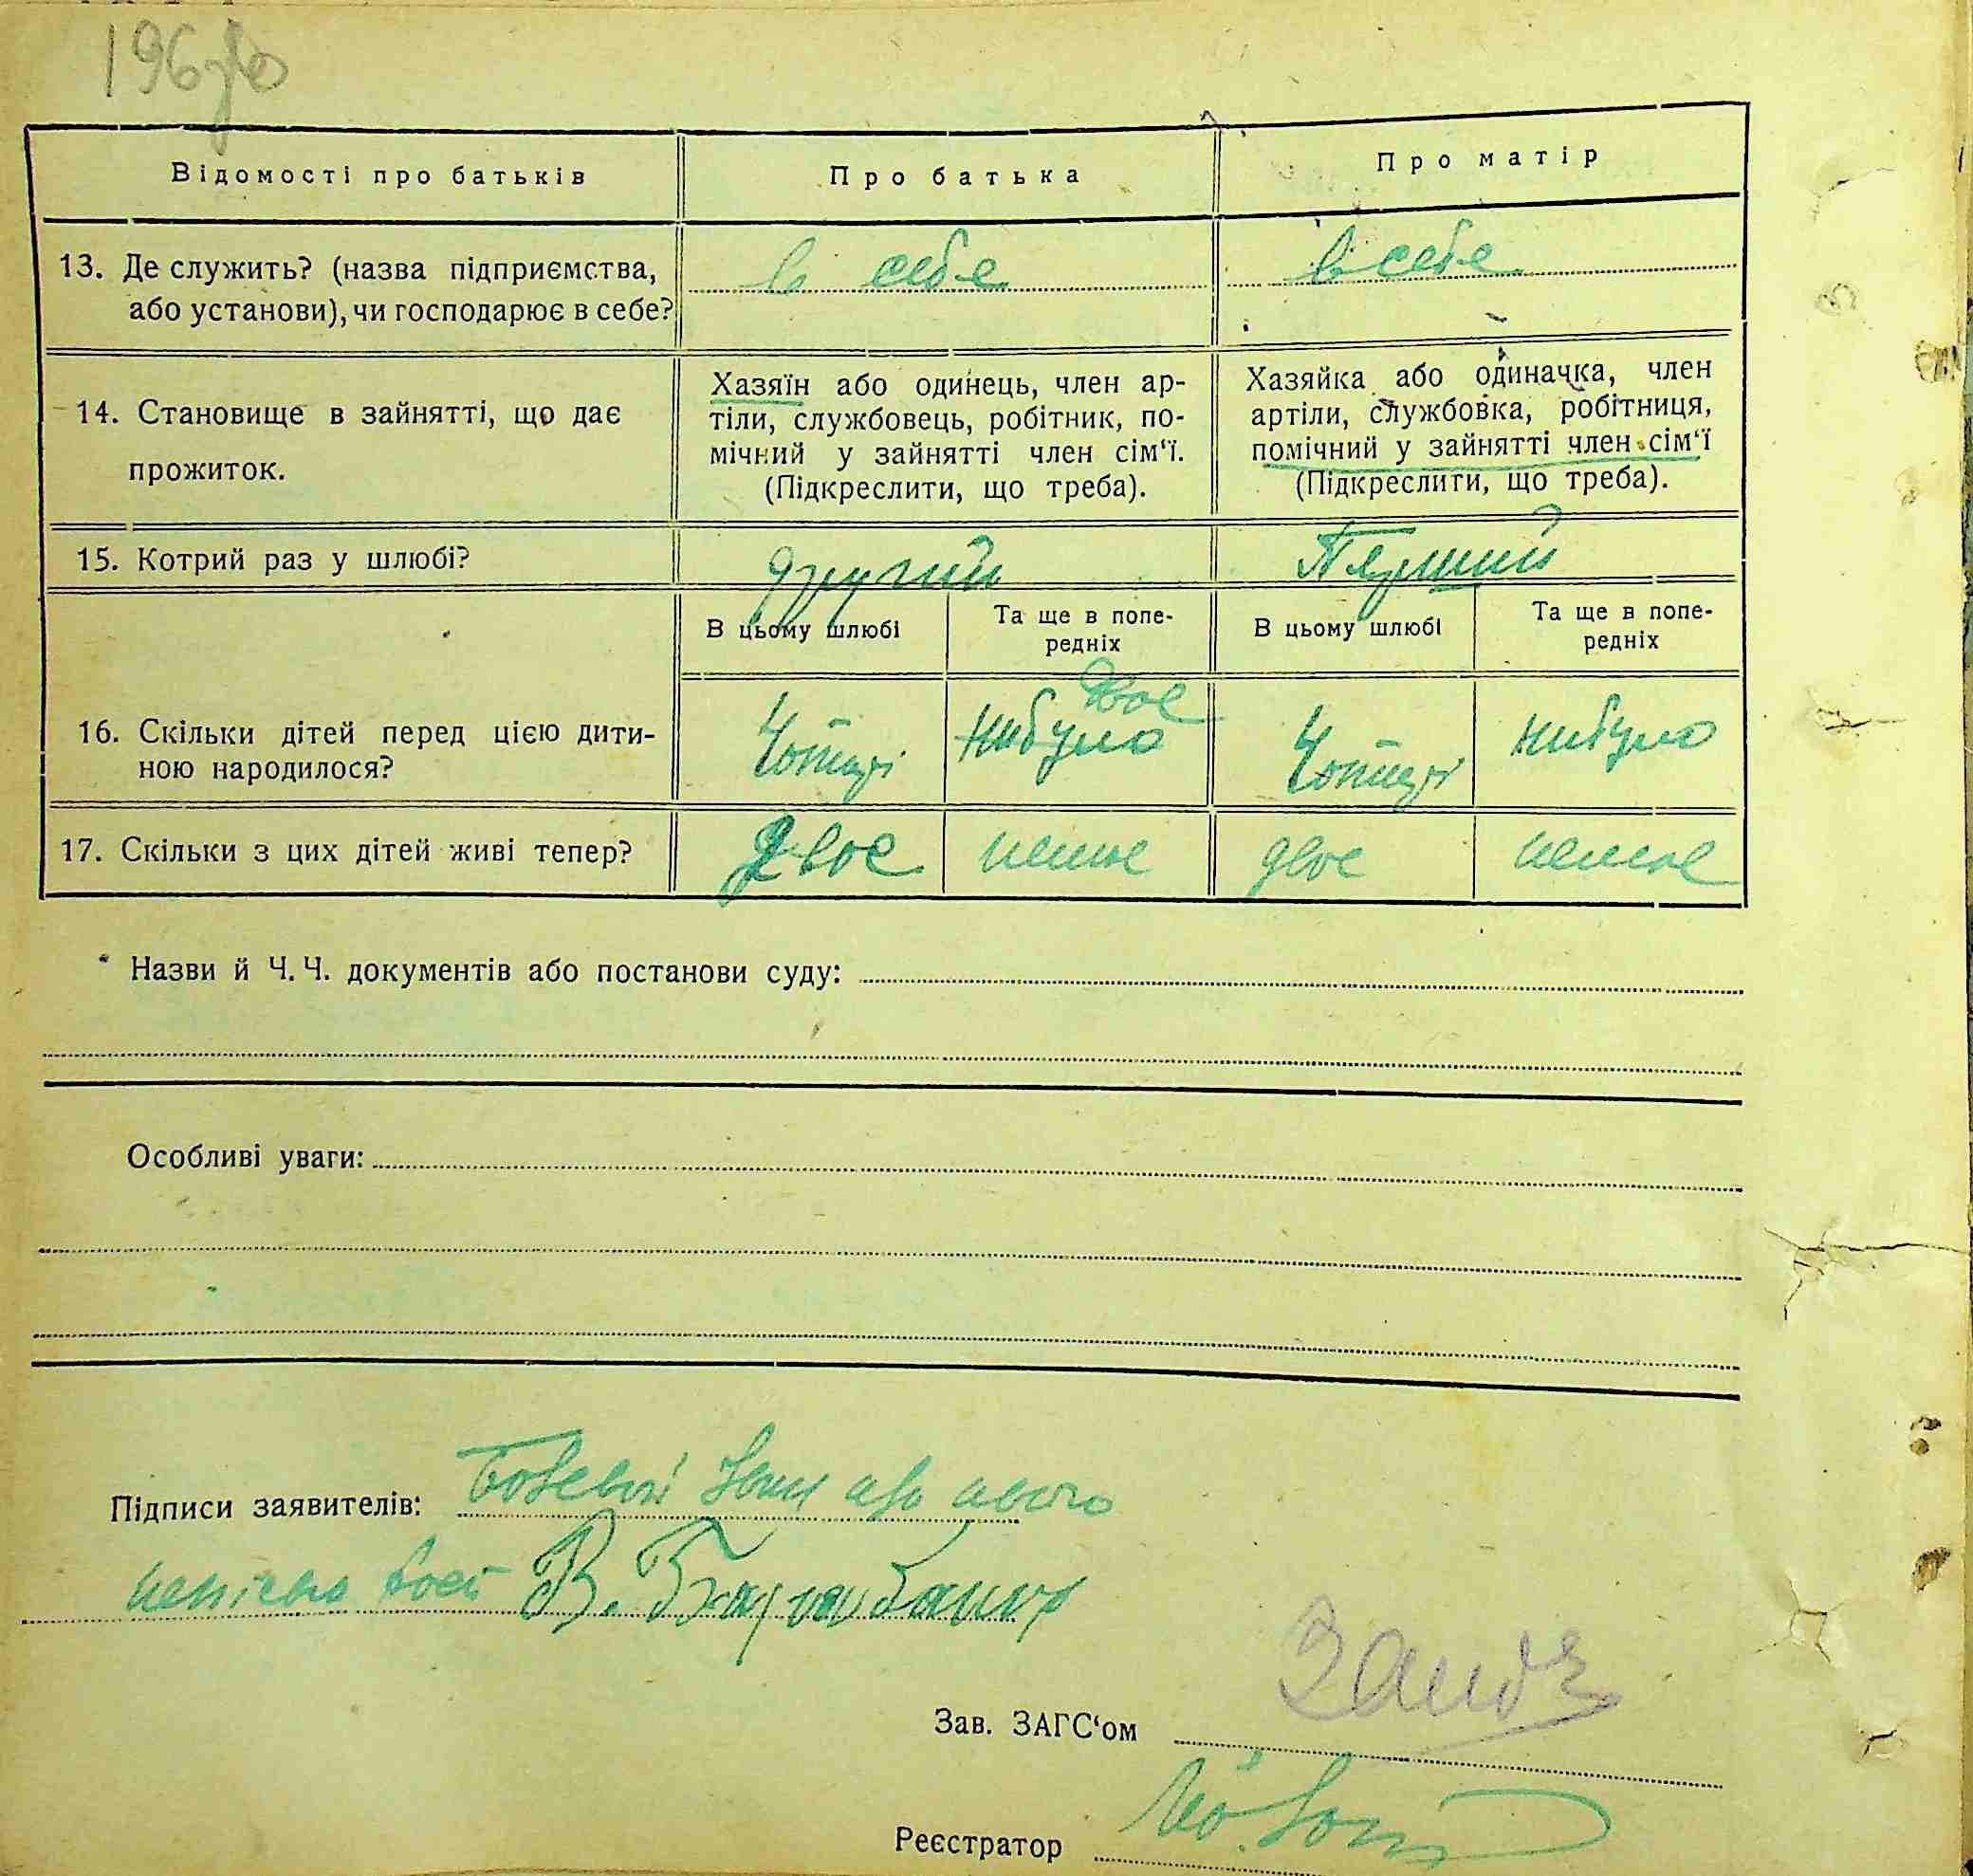 196
Відомості про батьків
Про батька
Про матір
13. Де служить? (назва підприємства,
або установи), чи господарює в себе?
в себе
в себе
14. Становище в зайнятті, що дає
прожиток.
Хазяїн або одинець, член ар-
тіли, службовець, робітник, по-
мічний у зайнятті член сім‘ї.
(Підкреслити, що треба).
Хазяйка або одиначка, член
артіли, службовка, робітниця,
помічний у зайнятті член сім‘ї
(Підкреслити, що треба).
15. Котрий раз у шлюбі?
другий
Перший
В цьому шлюбі
Та ще в попе-
редніх
В цьому шлюбі
Та ще в попе-
редніх
16. Скільки дітей перед цією дити-
ною народилося?
Чотирі
двое
нибуло
Чотирі
нибуло
17. Скільки з цих дітей живі тепер?
Двое
немае
двое
немае
Назви й Ч. Ч. документів або постанови суду:
Особливі уваги:
Підписи заявителів:
В.
Зав. ЗАГС‘ом
Реєстратор